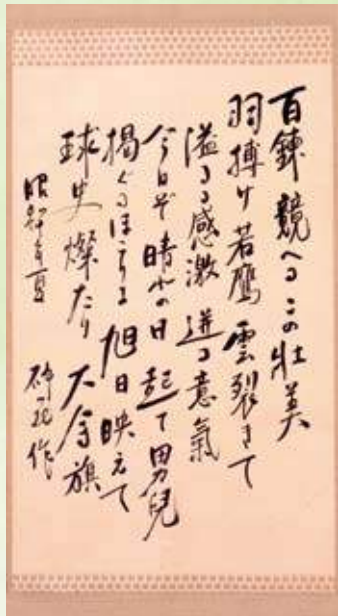 百鍊競へるこの壮美
羽搏け若鷹雲裂きて
溢るる感激迸る意氣
今日ぞ晴れの日起て男兒
掲ぐるほこりに旭日映えて
球史燦たり大会旗
昭和 年夏 砕花作